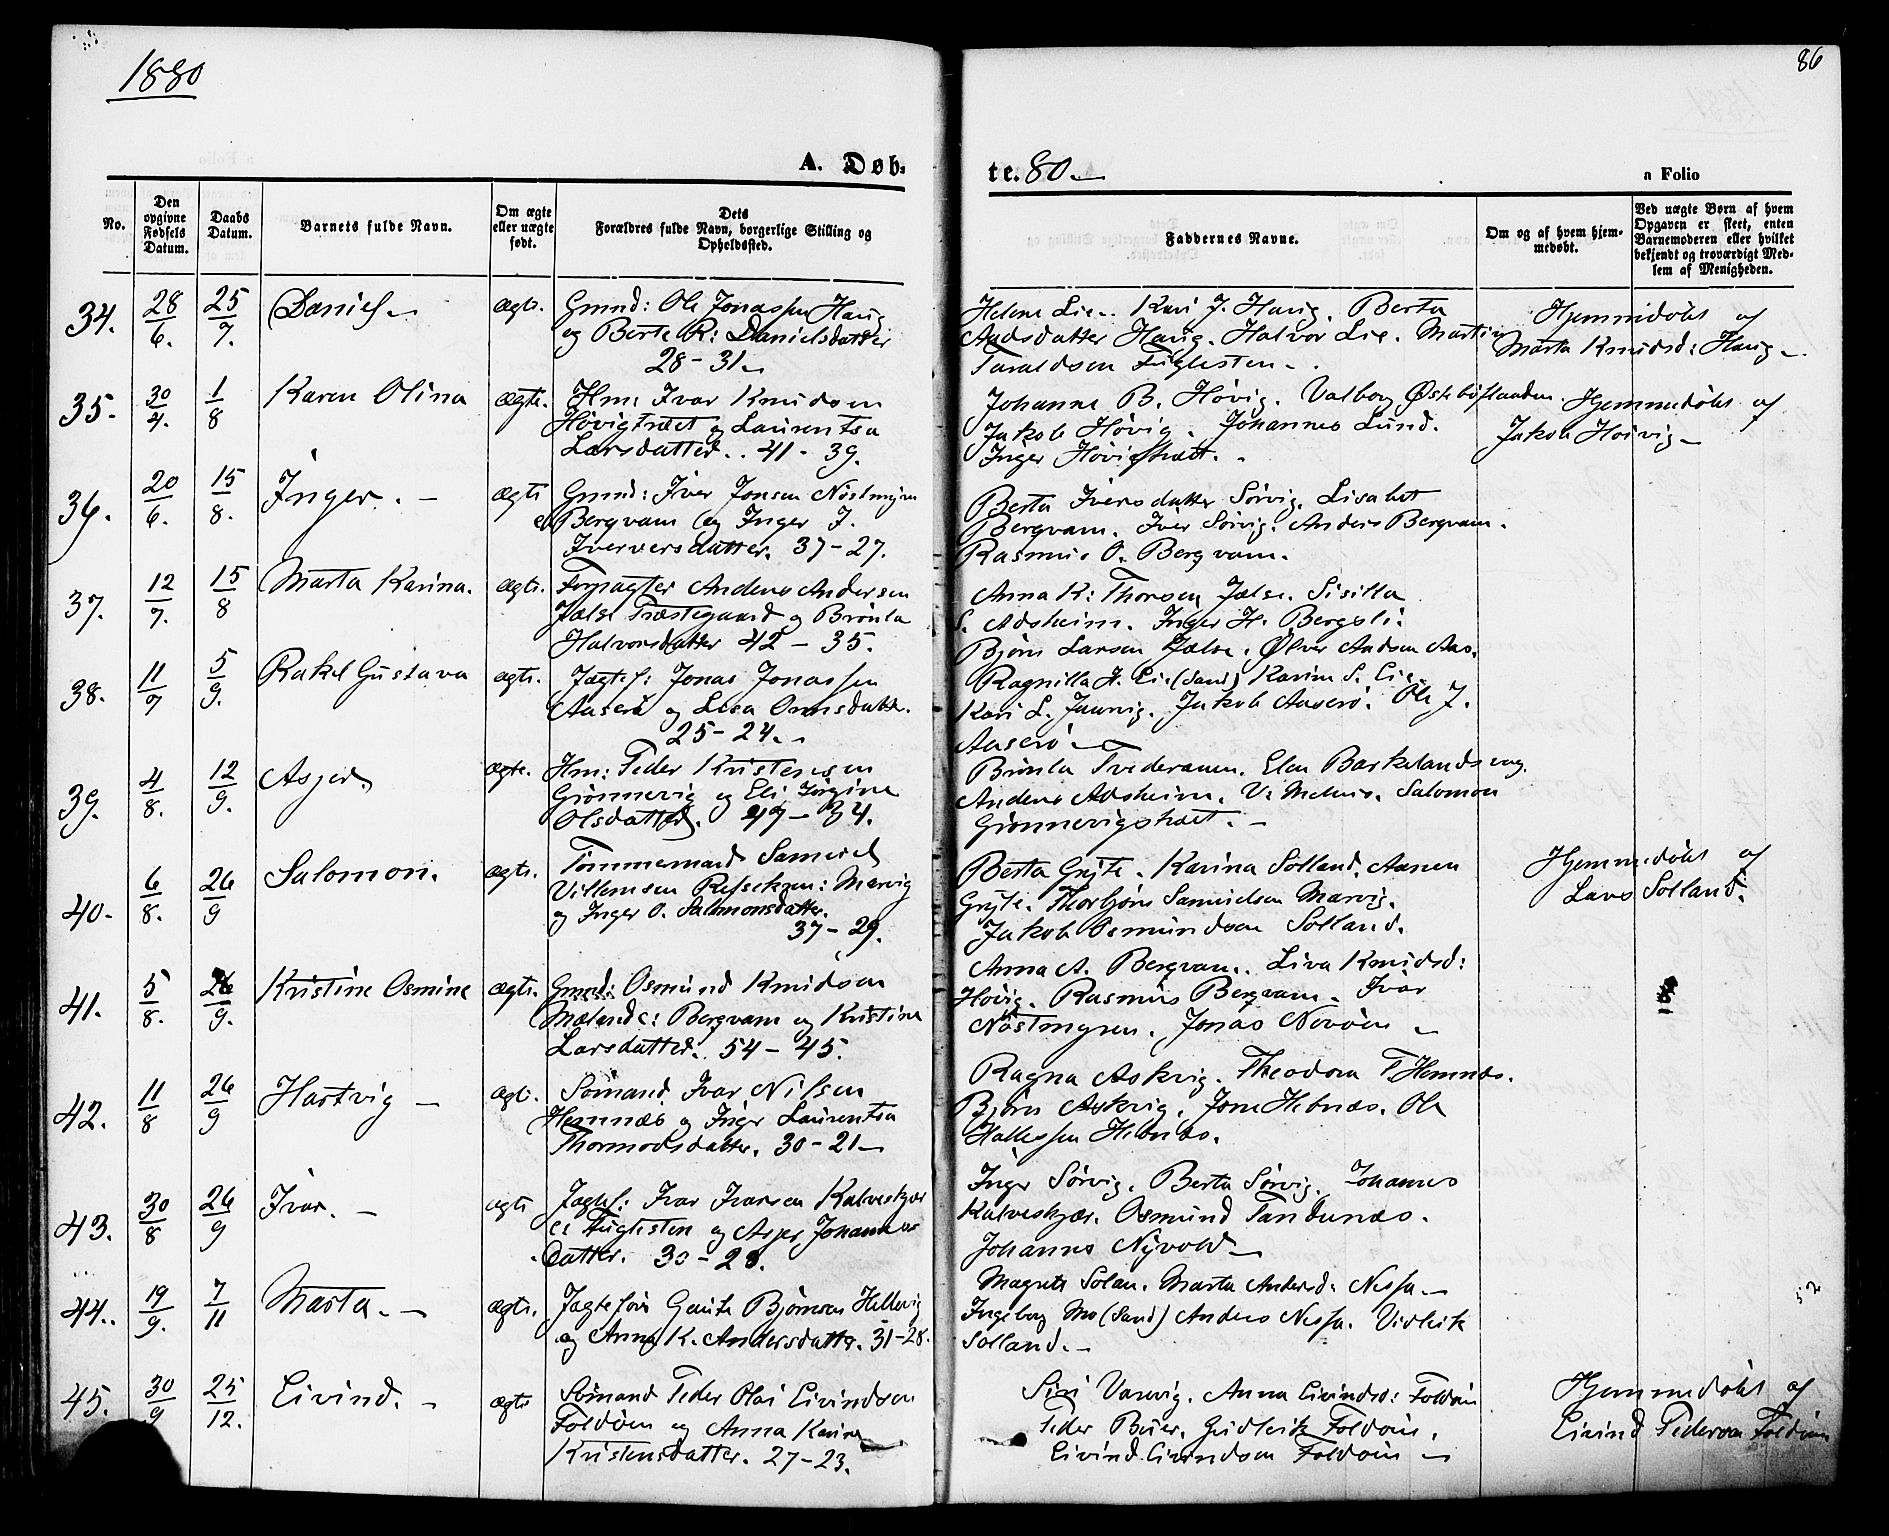 1880
86
A. Døb-
te. 80.
a Folio
No.
Den opgivne Fødsels Datum.
Daabs Datum.
Barnets fulde Navn.
Om ægte eller uægte født.
Dets Forældres fulde Navn, borgerlige Stilling og Opholdssted.
Faddernes Navne.
Om og af hvem hjem-
medøbt.
Ved uægte Børn af hvem
Opgaven er skeet, enten
Barnemoderen eller hvilket
bekjendt og troværdigt Med-
lem af Menigheden.
34. 28/6. 25/7. Daniel ægte. Gmnd: Ole Jonassen Haug
og Berte R: Danielsdatter
28-31
Helene Lie. Kari J. Haug. Berta
Aadsdatter Haug. Halvor Lie. Martin
Taraldsen Fuglesten.
Hjemmedøbt af
Marta Knudsd: Haug
35. 30/4. 1/8 Karen Olina ægte. Hm: Ivar Knudsen
Høvigtræet og Laurentsa
Larsdatter. 41-39.
Johanne B. Høvig. Valborg
Jakob Høvig. Johannes Lund.
Inger Høvigtræt.
Hjemmedøbt af
Jakob Høivig
36. 20/6. 15/8. Inger. ægte Gmnd: Iver Jonsen Nøstmyren
Bergvam og Inger J.
Iverversdatter. 37-27.
Berta Iversdatter Sørvig. Lisabet
Bergvam. Iver Sørvig. Anders Bergvam.
Rasmus O. Bergvam.
37. 12/7. 15/8 Marta Karina. ægte. Forpagter Anders Andersen
Jælse Præstegaard og Brønla
Halvorsdatter 42-35.
Anna K: Thorsen Jælse. Sisilla
S. Adsheim. Inger H. Bergsli.
Bjørn Larsen Jælse. Ølver Aadsen Aas.
38. 11/7 5/9. Rakel Gustava ægte. Jægtef: Jonas Jonassen
Aaserø og Lisa Ormsdatter.
25-24.
Ragnilla H. Lie (Sand) Karine S. Lie.
Kari L. Jaunig. Jakob Aaserø. Ole J.
Aaserø
39. 4/8. 12/9. Asger ægte. Hm: Peder Kristensen
Grønnevig og Eli Jørgine
Olsdatter. 49-34.
Brønla Tvederaaen. Elen Barkelandsvag.
Anders Adsheim. V. Melhus. Salomon
Grønnevigstræt.
40. 6/8. 26/9 Salomon. ægte. Tømmermand Samuel
Villemsen Marvig
og Inger O. Salomonsdatter.
37-29.
Berta Gryte. Karina Solland. Aanen
Gryte. Thorbjørn Samuelsen Marvig.
Jakob Osmundsen Solland.
Hjemmedøbt af
Lars Solland.
41. 5/8. 26/9. Kristine Osmine ægte. Gmnd: Osmund Knudsen
Mælande: Bergvam og Kristine
Larsdatter. 54-45.
Anna A. Bergvam. Liva Knudsd:
Høvig. Rasmus Bergvam. Ivar
Nøstmyren. Jonas Nevøen
42. 11/8 26/9 Hartvig ægte. Sømand Ivar Nilsen
Hemnæs og Inger Laurentsa
Thormodsdatter. 30-21
Ragna Askvig. Theodora T. Hemnæs.
Bjørn Askvig. Jone Hebnæs. Ole
Hallessen Hebnæs.
43. 30/8 26/9 Ivar. ægte Jagtef: Ivar Ivarsen Kalveskjær
Fuglesten og Asger Johannes
datter. 30-28.
Inger Sørvig. Berta Sørvig. Johannes
Kalveskjær. Osmund Tandanæs.
Johannes Nyvold
44. 19/9. 7/11 Marta. ægte. Jagtefører Gaute Bjørnsen Hellevig
og Anna K. Andersdatter. 31-28.
Magrete Solan. Marta Andersd: Nessa.
Ingeborg Mo (Sand) Anders Nessa. Vidleik
Solland.
45. 30/9 25/12. Eivind. ægte Sømand Peder Olai Eivindsen
Foldøen og Anna Karine
Kristensdatter. 27-23.
Siri Varvig. Anna Eivindsd: Foldøen
Peder Bøer. Gudleik Foldøen.
Eivind Eivindsen Foldøen
Hjemmedøbt af
Eivind Pedersen Foldøen